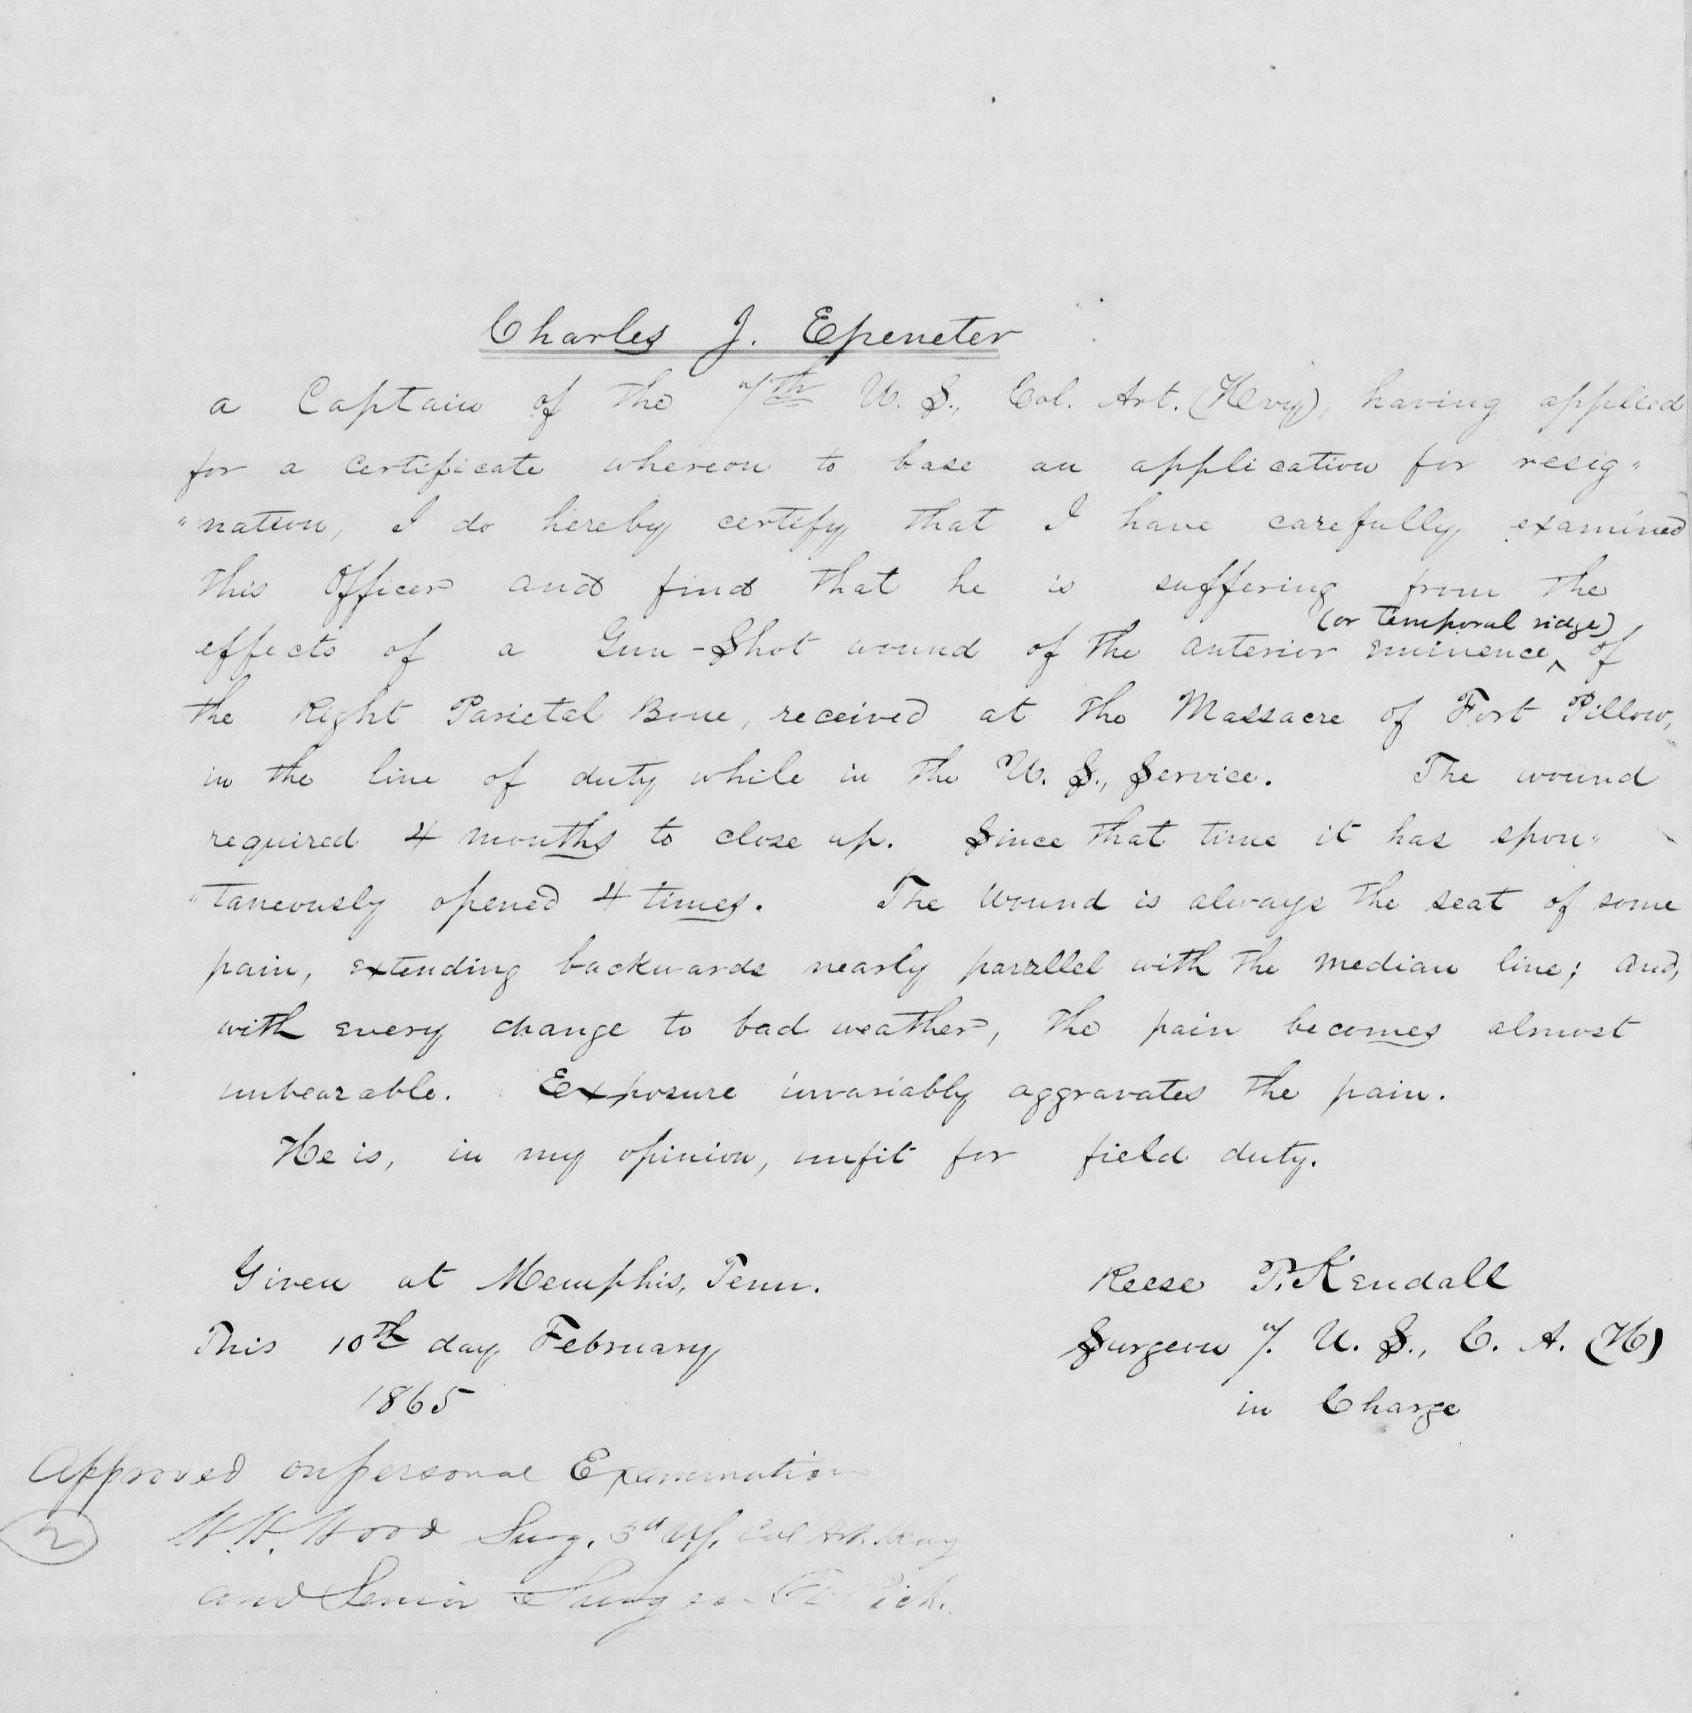 Charles J. Epeneter
a Captain of the 7th U. S., Col. Art. (Hvy), having applied
for a certificate whereon to base an application for resig"
"nation, I do hereby certify that I have carefully examined
this Officer and find that he is suffering from the
(or temporal ridge)
effects of a Gun-Shot wound of the anterior eminence ‸ of
the Right Parietal Bone, received at the Massacre of Fort Pillow,
in the line of duty while in the U. S., Service. The wound
required 4 months to close up. Since that time it has spon"
"taneously opened 4 times. The wound is always the seat of some
pain, extending backwards nearly parallel with the median line; and,
with every change to bad weather, the pain becomes almost
unbearable. Exposure invariably aggravates the pain.
He is, in my opinion, unfit for field duty.
Given at Memphis, Tenn.
This 10th day February
1865
Reese P. Kendall
Surgeon 7. U. S., C. A. (H)
in Charge
Approved on personal Examination
2
W. H. Wood Surg. 3d US. Col Art. Hvy
and Senior Surgeon Ft Pick.